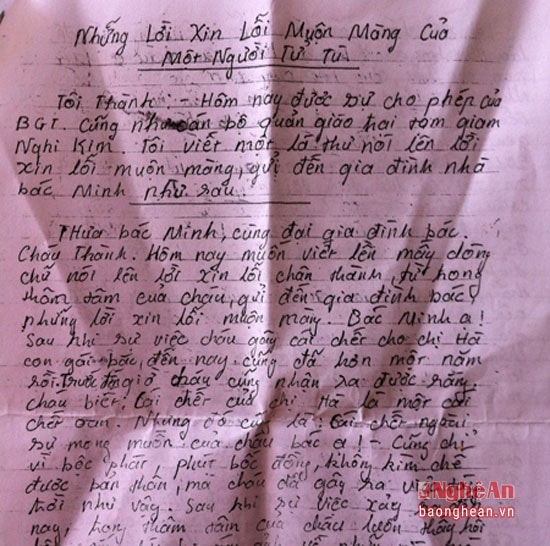 Những Lời Xin Lỗi Muộn Màng Của
Một Người Tử Tù
Tôi Thành; - Hôm nay được sự cho phép của
BGT. Cũng như cán bộ quản giáo trại tạm giam
Nghi Kim. Tôi viết một lá thư nói lên lời
xin lỗi muộn màng, gửi đến gia đình nhà
bác Minh như sau.
Thưa bác Minh, cùng đại gia đình bác.
Cháu Thành. Hôm nay muốn viết lên mấy dòng
chữ nói lên lời xin lỗi chân thành, từ trong
thâm tâm của cháu, gửi đến gia đình bác
những lời xin lỗi muộn màng. Bác Minh ạ!
Sau khi sự việc cháu gây cái chết cho chị Hà
con gái bác, đến nay cũng đã hơn một năm
rồi. cháu cũng nhận ra được rằng.
cháu biết. Cái chết của chị Hà là một cái
chết oan. Nhưng đó cũng là Cái chết ngoài
sự mong muốn của cháu bác ạ! - Cũng chỉ
vì bộc phát, phút bốc đồng, không kìm chế
được bản thân, mà cháu đã gây ra việc
như vậy. Sau khi sự việc xảy
nay, trong thâm tâm của cháu luôn thấy hối
Nghệ An
baonghean.vn